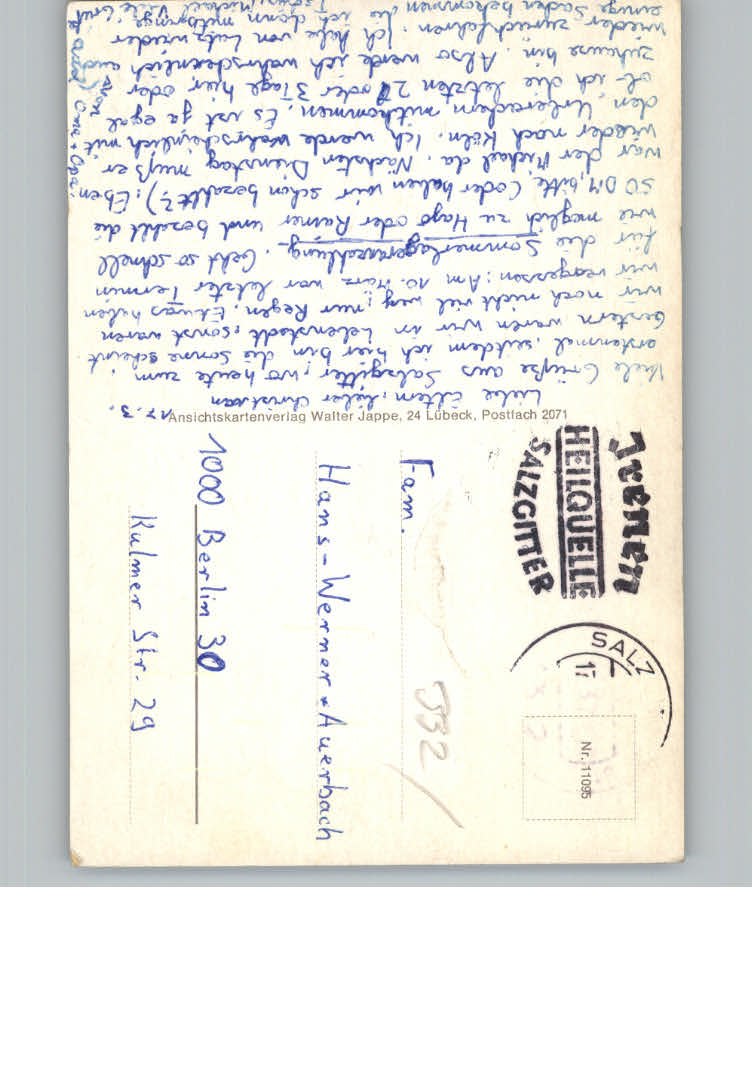 17.3.
Liebe Eltern, lieber Christian
Viele Grüße aus Salzgitter, wo heute zum
erstenmal, seitdem ich hier bin die Sonne scheint.
Gestern waren wir in Lebenstedt, sonst waren
wir noch nicht viel weg; nur Regen. Etwas haben
wir vergessen: Am 10. März war letzter Termin
für die Sommerlageranzahlung. Geht so schnell
wie möglich zu Hajo oder Rainer und bezahlt die
50 DM, bitte. (oder haben wir schon bezahlt?). Eben
war der Michael da. Nächsten Dienstag muß er
wieder nach Köln. Ich werde wahrscheinlich mit
den mitkommen. Es ist ja egal
ob ich die letzten 2 oder 3 Tage hier oder
zuhause bin. Also werde ich wahrscheinlich auch
wieder zurückfahren. Ich habe von Lutz wieder
einige Sachen bekommen die ich dann mitbringe.
Viele
von Oma + Opa
Ansichtskartenverlag Walter Jappe, 24 Lübeck, Postfach 2071
HEILQUELLE
SALZGITTER
SALZ
17
Nr. 11095
332/
Fam.
Hans-Werner Auerbach
1000 Berlin 30
Kulmer Str. 29